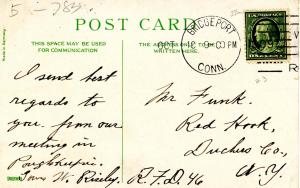 5-
POST CARD
Made in Germany
THIS SPACE MAY BE USED
FOR COMMUNICATION
THE ADDRESS
WRITTEN HERE.
BRIDGEPORT
OCT
PM
CONN.
I send best
regards to
you, from our
meeting in
Poughkeepsie.
W.
R.F.D. 46
Mr Funk.
Red Hook,
Duchess Co,
N.Y.